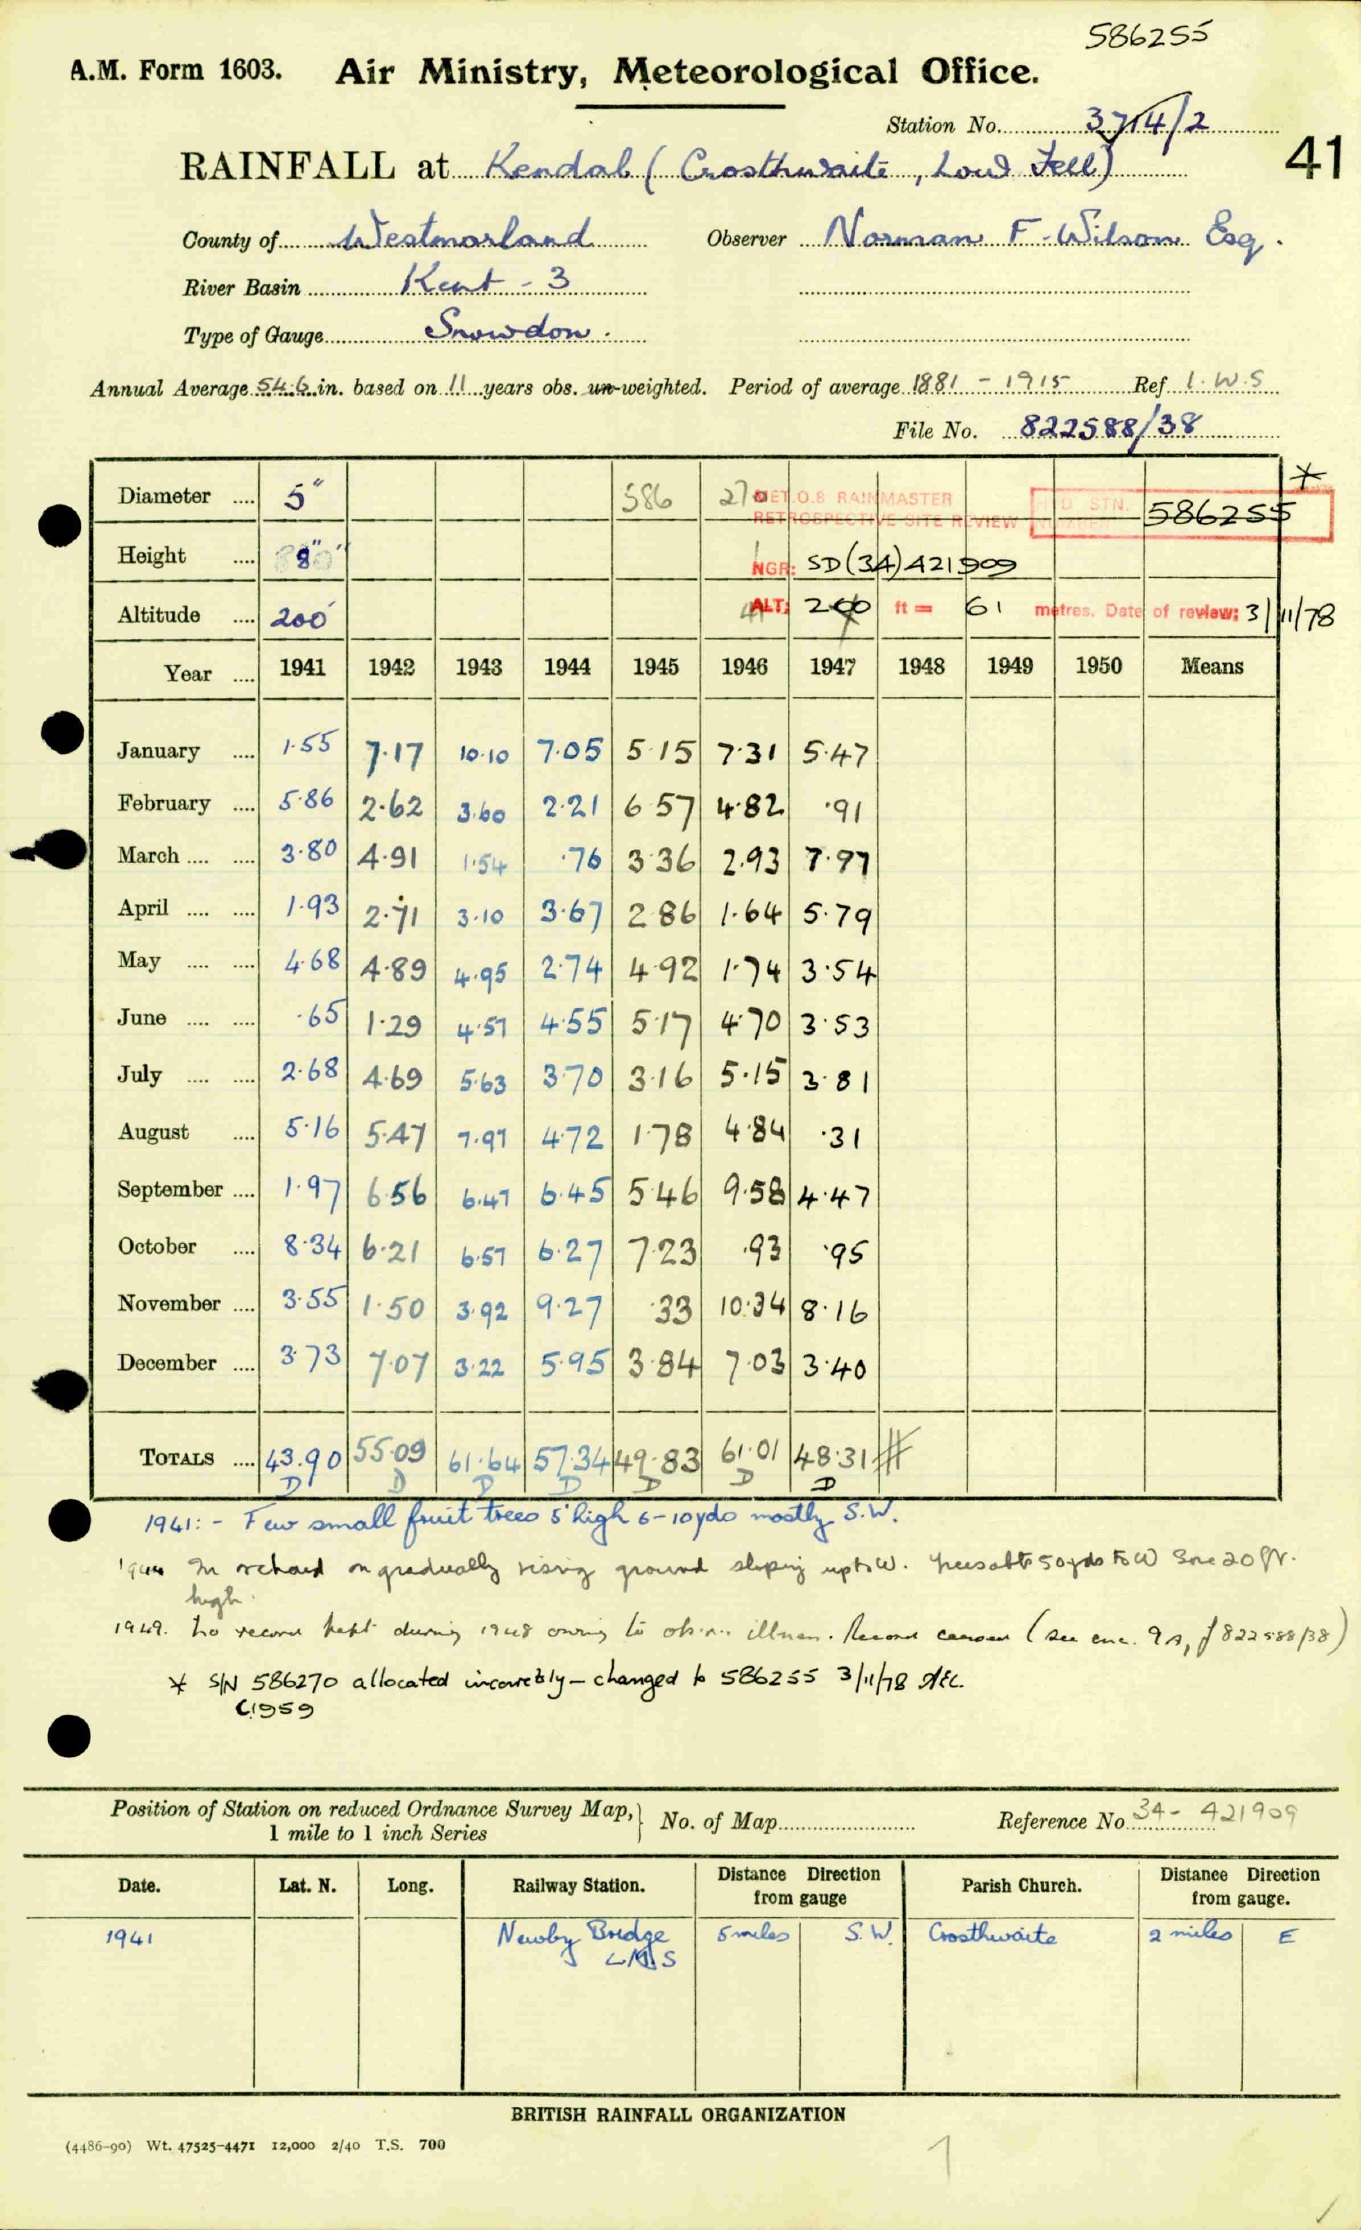 586255
A.M. Form 1603. Air Ministry, Meteorological Office.
Station No. 3714/2
41
RAINFALL at Kendal (Crosthwaite, Low Fell)
County of Westmorland Observer Norman F. Wilson Esq.
River Basin Kent - 3
Type of Gauge Snowdon.
Annual Average 54.6 in. based on 11 years obs. un-weighted. Period of average 1881 - 1915 Ref I.W.S
File No. 822588/38
Diameter .... 5" 586 270 MET.O.8 RAINMASTER *
RETROSPECTIVE SITE REVIEW 586255
Height .... 8" NGR: SD(34)421909
Altitude .... 200' ALT: 200 ft = 61 metres. Date of review: 3/11/78
Year .... 1941 1942 1943 1944 1945 1946 1947 1948 1949 1950 Means
January .... 1.55 7.17 10.10 7.05 5.15 7.31 5.47
February .... 5.86 2.62 3.60 2.21 6.57 4.82 .91
March .... .... 3.80 4.91 1.54 .76 3.36 2.93 7.97
April .... .... 1.93 2.71 3.10 3.67 2.86 1.64 5.79
May .... .... 4.68 4.89 4.95 2.74 4.92 1.74 3.54
June .... .... .65 1.29 4.57 4.55 5.17 4.70 3.53
July .... .... 2.68 4.69 5.63 3.70 3.16 5.15 3.81
August .... 5.16 5.47 7.97 4.72 1.78 4.84 .31
September .... 1.97 6.56 6.47 6.45 5.46 9.58 4.47
October .... 8.34 6.21 6.57 6.27 7.23 .93 .95
November .... 3.55 1.50 3.92 9.27 .33 10.34 8.16
December .... 3.73 7.07 3.22 5.95 3.84 7.03 3.40
TOTALS .... 43.90 55.09 61.64 57.34 49.83 61.01 48.31 #
D D D D D D D
1941:- Few small fruit trees 5' high 6-10yds mostly S.W.
1944 In orchard on gradually rising ground sloping up to W. trees abt 50yds to W Some 20 ft.
high.
1949. No record kept during 1948 owing to obsr's illness. Record ceased (see enc. 9A, f 822588/38)
* S/N 586270 allocated incorrectly - changed to 586255 3/11/78
C1959
Position of Station on reduced Ordnance Survey Map, } No. of Map Reference No 34- 421909
1 mile to 1 inch Series
Date. Lat. N. Long. Railway Station. Distance Direction from gauge Parish Church. Distance Direction from gauge.
1941 Newby Bridge 5 miles S.W. Crosthwaite 2 miles E
LMS
BRITISH RAINFALL ORGANIZATION
(4486-90) Wt. 47525-4471 12,000 2/40 T.S. 700
1